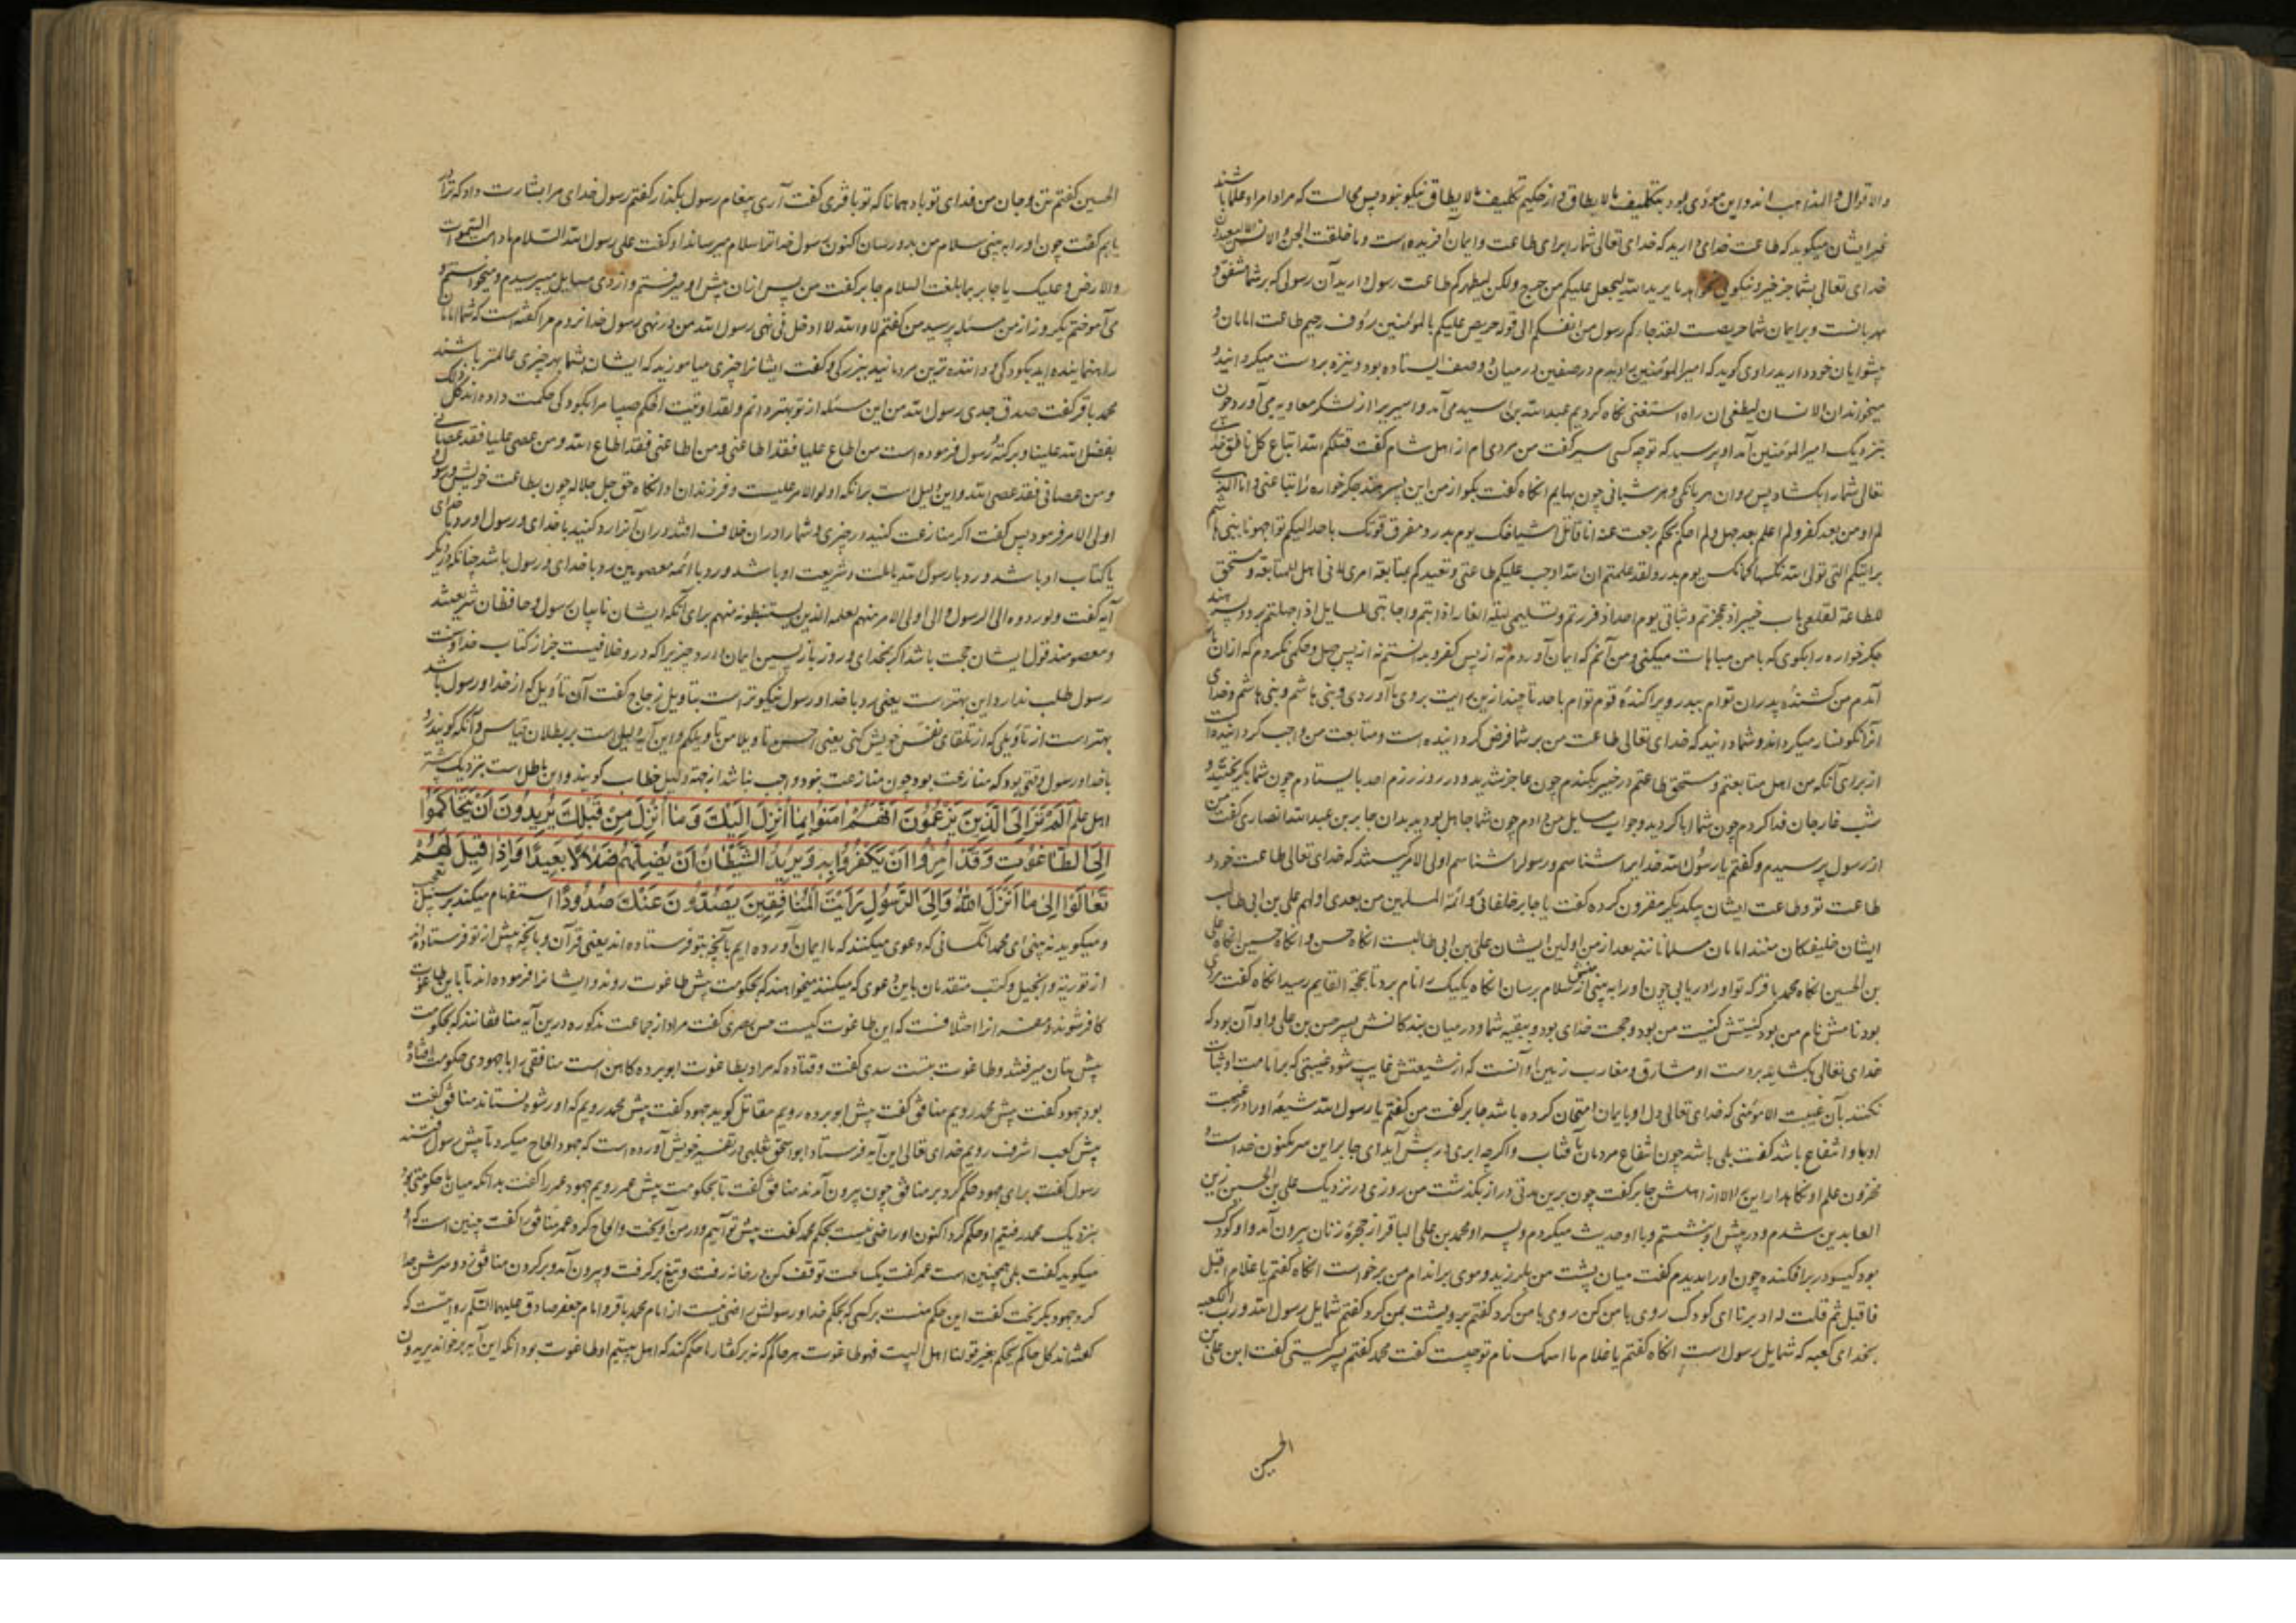 والاقوال والمذاهب اند و این مؤدی بود بتکلیف مالایطاق و از حکیم تکلیف مالایطاق نیکو نبود پس محالست که مراد امرا و علما باشند
غیر ایشان میکوید که طاعت خدای دارید که خدای تعالی شما را برای طاعت و ایمان آفریده است وما خلقت الجن والانس الا لیعبدون
خدای تعالی بشما جز خیر و نیکویی نخواهد ما یرید الله لیجعل علیکم من حرج ولکن لیطهرکم طاعت رسول دارید آن رسولی که بر شما مشفق و
مهربانست و بر ایمان شما حریصست لقد جاءکم رسول من انفسکم الی قوله حریص علیکم بالمؤمنین رؤف رحیم طاعت امامان و
پیشوایان خود دارید راوی کوید که امیرالمؤمنین را دیدم در صفین در میان دو صف ایستاده بود و نیزه بر دست میکردانید و
میخواند ان الانسان لیطغی ان راه استغنی نکاه کردیم عبدالله بن اسید می آمد و اسیری را از لشکر معاویه می آورد چون
بنزدیک امیرالمؤمنین آمد او پرسید که تو چه کسی اسیر کفت من مردی ام از اهل شام کفت قتلکم الله اتباع کل ناعق خدای
تعالی شما را بکشاد پس روان هر بانکی و هر شبانی چون بهایم انکاه کفت بکو از من این پسر هند جکرخواره را
لم اومن بعد کفر ولم اعلم بعد جهل ولم احکم بحکم رجعت عنه انا قاتل اشیاخک یوم بدر ومفرق قومک باحد
برایتکم التی تولی الله نکسها یوم بدر ولقد علمتم ان الله اوجب علیکم طاعتی وتعبدکم بمتابعة امری لانی اهل للمتابعة ومستحق
للطاعة لقلعی باب خیبر اذ عجزتم وثباتی یوم احد اذ فررتم وتسلیمی لیلة الغار اذ ابیتم واجابتی المسایل اذا جهلتم برو و پسر هند
جکرخواره را بکوی که با من مباهات میکنی و من آنم که ایمان آوردم نه از پس کفر و بدانستم نه از پس جهل و حکمی نکردم که ازان باز
آمدم من کشندهٔ پدران توام ببدر و پراکندهٔ قوم توام باحد تا چند ازین رایت بروی ما آوردی و بنی هاشم و خدای
آنرا نکونسار میکرداند و شما دانید که خدای تعالی طاعت من بر شما فرض کردانیده است و متابعت من واجب کردانیده است
از برای آنکه من اهل متابعتم و مستحق طاعتم در خیبر بکندم چون عاجز شدید و در روز رزم احد بایستادم چون شما بکریختید و
شب غار جان فدا کردم چون شما ابا کردید و جواب سایل من دادم چون شما جاهل بودید بدان جابر بن عبدالله انصاری کفت من
از رسول پرسیدم و کفتم یا رسول الله خدایرا شناسم و رسول را شناسم اولی الامر کیستند که خدای تعالی طاعت خود و
طاعت تو و طاعت ایشان بیکدیکر مقرون کرده کفت یا جابر خلفائی وائمة المسلمین من بعدی اولهم علی بن ابی طالب
ایشان خلیفکان منند امامان مسلمانانند بعد از من اولین ایشان علی بن ابی طالبست انکاه حسن و انکاه حسین انکاه علی
بن الحسین انکاه محمد باقر که تو او را دریابی چون او را به بینی از منش سلام برسان انکاه یکیک را نام برد تا بحجة القایم رسید انکاه کفت
بود نامش نام من بود کنیتش کنیت من بود و حجت خدای بود و بقیه شما در میان بندکانش پسر حسن بن علی و او آن بود که
خدای تعالی بکشاید بر دست او مشارق و مغارب زمین او آنست که از شیعتش غایب شود غیبتی که بر امامت او ثبات
نکنند بآن غیبت الا مؤمنی که خدای تعالی دل او بایمان امتحان کرده باشد جابر کفت من کفتم یا رسول الله شیعهٔ او را در غیبت
او باو انتفاع باشد کفت بلی باشد چون انتفاع مردمان بآفتاب و اکرچه ابری در پیش آید ای جابر این سر مکنون خداست و
مخزون علم او نکاهدار این را الا از اهلش جابر کفت چون برین مدتی دراز بکذشت من روزی در نزدیک علی بن الحسین زین
العابدین شدم و در پیش او بنشستم و با او حدیث میکردم و پسر او محمد بن علی الباقر از حجرهٔ زنان بیرون آمد و او کودک
بود کیسو در برافکنده چون او را بدیدم کفت میان پشت من بلرزید و موی بر اندام من برخواست انکاه کفتم یا غلام اقبل
فاقبل ثم قلت له ادبر ای کودک روی با من کن روی با من کرد کفتم برو پشت بمن کرد کفتم شمایل رسول الله ورب الکعبه
بخدای کعبه که شمایل رسول است انکاه کفتم یا غلام ما اسمک نام تو چیست کفت محمد کفتم پسر کیستی کفت ابن علی بن
الحسین
الحسین کفتم تن و جان من فدای تو باد همانا که تو باقری کفت آری پیغام رسول بکذار کفتم رسول خدای مرا بشارت داد که ترا در
یابم کفت چون او را به بینی سلام من بدو رسان اکنون رسول خدا ترا سلام میرساند او کفت علی رسول الله السلام ما دامت السموات
والارض وعلیک یا جابر بما بلغت السلام جابر کفت من پس ازان پیش او میرفتم و از وی مسایل میپرسیدم و میخواستم و
می آموختم یکروز از من مسئله پرسید من کفتم لا والله لا ادخل فی نهی رسول الله من در نهی رسول خدا نروم مرا کفته است که شما امامان
راهنماینده اید بکودکی و داننده ترین مردمانید ببزرکی و کفت ایشانرا چیزی میاموزید که ایشان از شما بهر چیزی عالمتر باشند
محمد باقر کفت صدق جدی رسول الله من این مسئله از تو بهتر دانم ولقد اوتیت الحکم صبیا مرا بکودکی حکمت داده اند کل ذلک
بفضل الله علینا وبرکته رسول فرموده است من اطاع علیا فقد اطاعنی ومن اطاعنی فقد اطاع الله ومن عصی علیا فقد عصانی
ومن عصانی فقد عصی الله و این دلیل است برانکه اولوالامر علیست و فرزندان او انکاه حق جل جلاله چون بطاعت خویش و رسول و
اولی الامر فرمود پس کفت اکر منازعت کنید در چیزی و شما را دران خلاف افتد دران آنرا رد کنید با خدای و رسول او رد با خدای
با کتاب او باشد و رد با رسول الله با سنت و شریعت او باشد و رد با ائمه معصومین رد با خدای و رسول باشد چنانکه در دیکر
آیه کفت ولو ردوه الی الرسول والی اولی الامر منهم لعلمه الذین یستنبطونه منهم برای آنکه ایشان نایبان رسول و حافظان شریعتند
و معصومند قول ایشان حجت باشد اکر بخدای و روز بازپسین ایمان دارد چیزی را که درو خلافیست جز از کتاب خدا و سنت
رسول طلب ندارد این بهترست یعنی رد با خدا و رسول نیکوتر است بتاویل زجاج کفت آن تاویل که از خدا و رسول باشد
بهتر است از تاویلی که از تلقای نفس خویش کنی یعنی احسن تاویلا من تاویلکم و این آیه دلیل است بر بطلان قیاس و آنکه کویند رد
با خدا و رسول وقتی بود که منازعت بود چون منازعت نبود واجب نباشد از جهة دلیل خطاب کویند و این باطل است بنزدیک بیشتر
اهل علم اَلَمْ تَرَ اِلَی الَّذینَ یَزْعُمُونَ اَنَّهُمْ اٰمَنُوا بِمٰا اُنْزِلَ اِلَیْکَ وَ مٰا اُنْزِلَ مِنْ قَبْلِکَ یُریدُونَ اَنْ یَتَحٰاکَمُوا
اِلَی الطّٰاغُوتِ وَ قَدْ اُمِرُوا اَنْ یَکْفُرُوا بِهِ وَ یُریدُ الشَّیْطٰانُ اَنْ یُضِلَّهُمْ ضَلٰالًا بَعیدًا وَ اِذٰا قیلَ لَهُمْ
تَعٰالَوْا اِلیٰ مٰا اَنْزَلَ اللهُ وَ اِلَی الرَّسُولِ رَاَیْتَ الْمُنٰافِقینَ یَصُدُّونَ عَنْکَ صُدُودًا استفهام میکند بر سبیل تعجب
و میکوید نه بینی ای محمد انکسانی که دعوی میکنند که ما ایمان آورده ایم بآنچه بتو فرستاده اند یعنی قرآن و بآنچه پیش از تو فرستاده اند
از توریة و انجیل و کتب متقدمان باین دعوی که میکنند میخواهند که بحکومت پیش طاغوت روند و ایشانرا فرموده اند تا باین طاغوت
کافر شوند و مفسرانرا اختلافست که این طاغوت کیست حسن بصری کفت مراد از جماعت مذکوره درین آیه منافقانند که بحکومت
پیش بتان میرفتند و طاغوت بتست سدی کفت و قتاده که مراد بطاغوت ابوبرده کاهن است منافقی را با جهودی حکومت افتاده
بود جهود کفت پیش محمد رویم منافق کفت پیش ابوبرده رویم مقاتل کوید جهود کفت پیش محمد رویم که او رشوه نستاند منافق کفت
پیش کعب اشرف رویم خدای تعالی این آیه فرستاد ابواسحق ثعلبی در تفسیر خویش آورده است که جهود الحاح میکرد تا پیش رسول رفتند
رسول کفت برای جهود حکم کرد بر منافق چون بیرون آمدند منافق کفت تا بحکومت پیش عمر رویم جهود عمر را کفت بدانکه میان ما حکومتی بود
بنزدیک محمد رفتیم او حکم کرد اکنون او راضی نیست بحکم محمد کفت پیش تو آییم و در من آویخت و الحاح کرد عمر منافق را کفت چنین است که او
میکوید کفت بلی همچنین است عمر کفت یکساعت توقف کن در خانه رفت و تیغ برکرفت و بیرون آمد و بر کردن منافق زد و سرش جدا
کرد جهود بکریخت کفت این حکم منست بر کسی که بحکم خدا و رسولش راضی نیست از امام محمد باقر و امام جعفر صادق علیهما السلام روایتست که
کفته اند کل حاکم یحکم بغیر قولنا اهل البیت فهو طاغوت هر حاکم که نه بر کفتار ما حکم کند که اهل بیتیم او طاغوت بود انکه این آیه برخواند یریدون